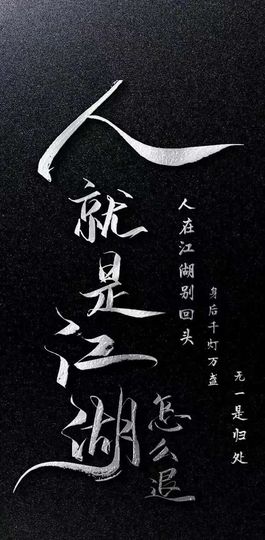 人就是江湖
怎么退
人在江湖别回头
身后千灯万盏
无一是归处